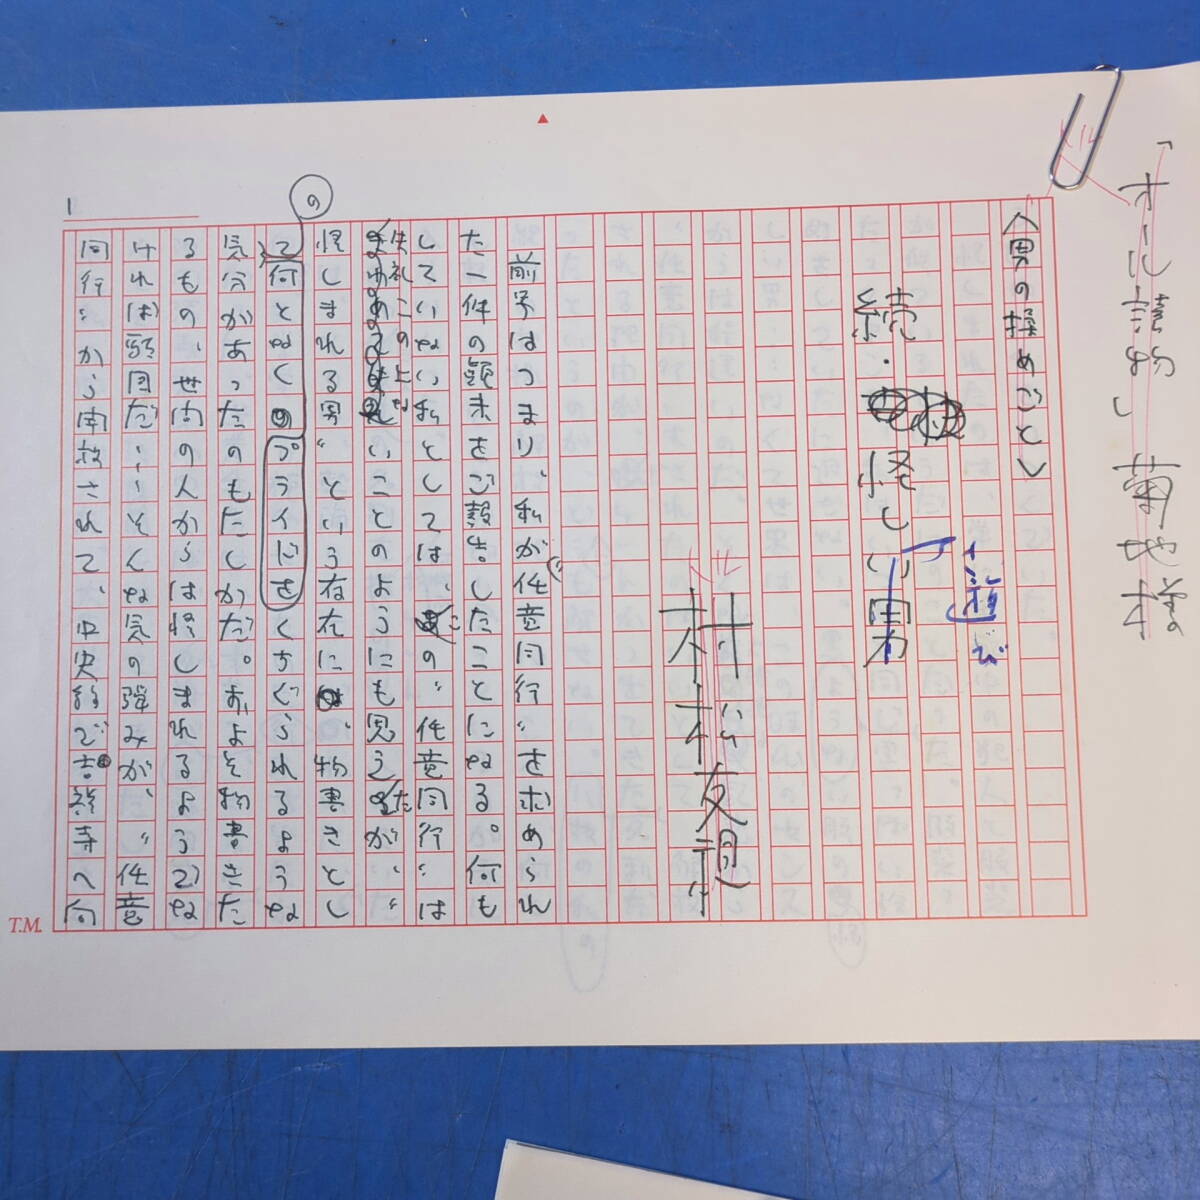 「オール讀物」菊地様
トル
〈男の操めごと〉
続・怪しい男
遊び
トル
村松友視
1
前号はつまり、私が〝任意同行〟を求められ
た一件の顛末をご報告したことになる。何も
していない私としては、この〝任意同行〟は
失礼この上ないことのようにも思えたが、〝
怪しまれる男〟という存在には、物書きとし
て何となくのプライドをくすぐられるような
の
気分があったのもたしかだ。およそ物書きた
るもの、世間の人からは怪しまれるようでな
ければ駄目だ……そんな気の弾みが、〝任意
同行〟から開放されて、中央線で吉祥寺へ向
T.M.